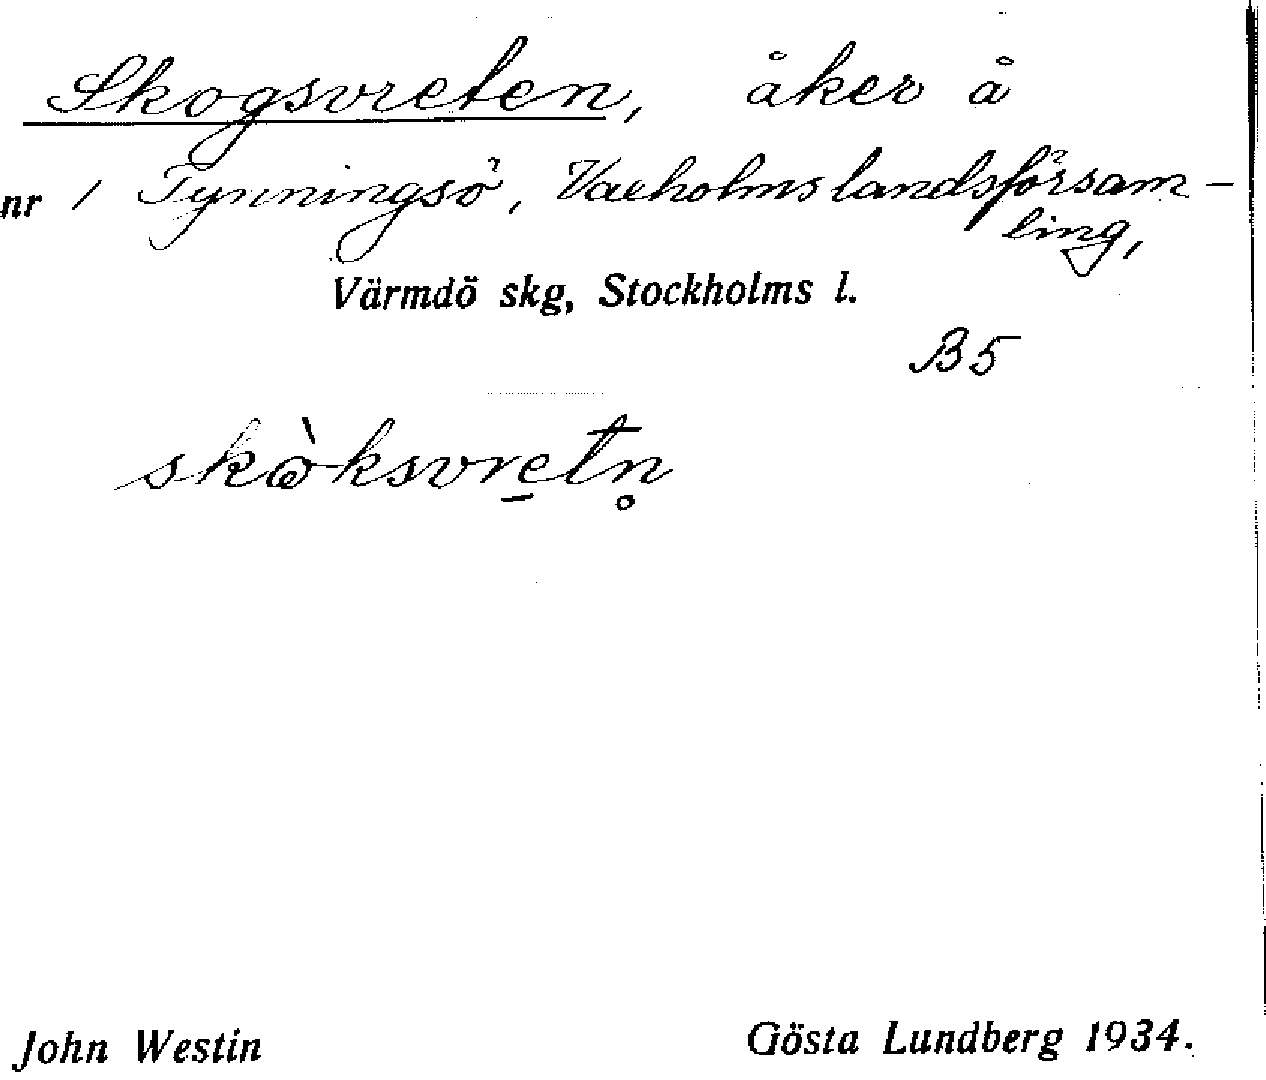 Skogsvreten, åker å
nr 1 Tynningsö, Vaxholms landsförsam-
ling,
Värmdö skg, Stockholms l.
B5
skòksvre̠tn̥
John Westin Gösta Lundberg 1934.